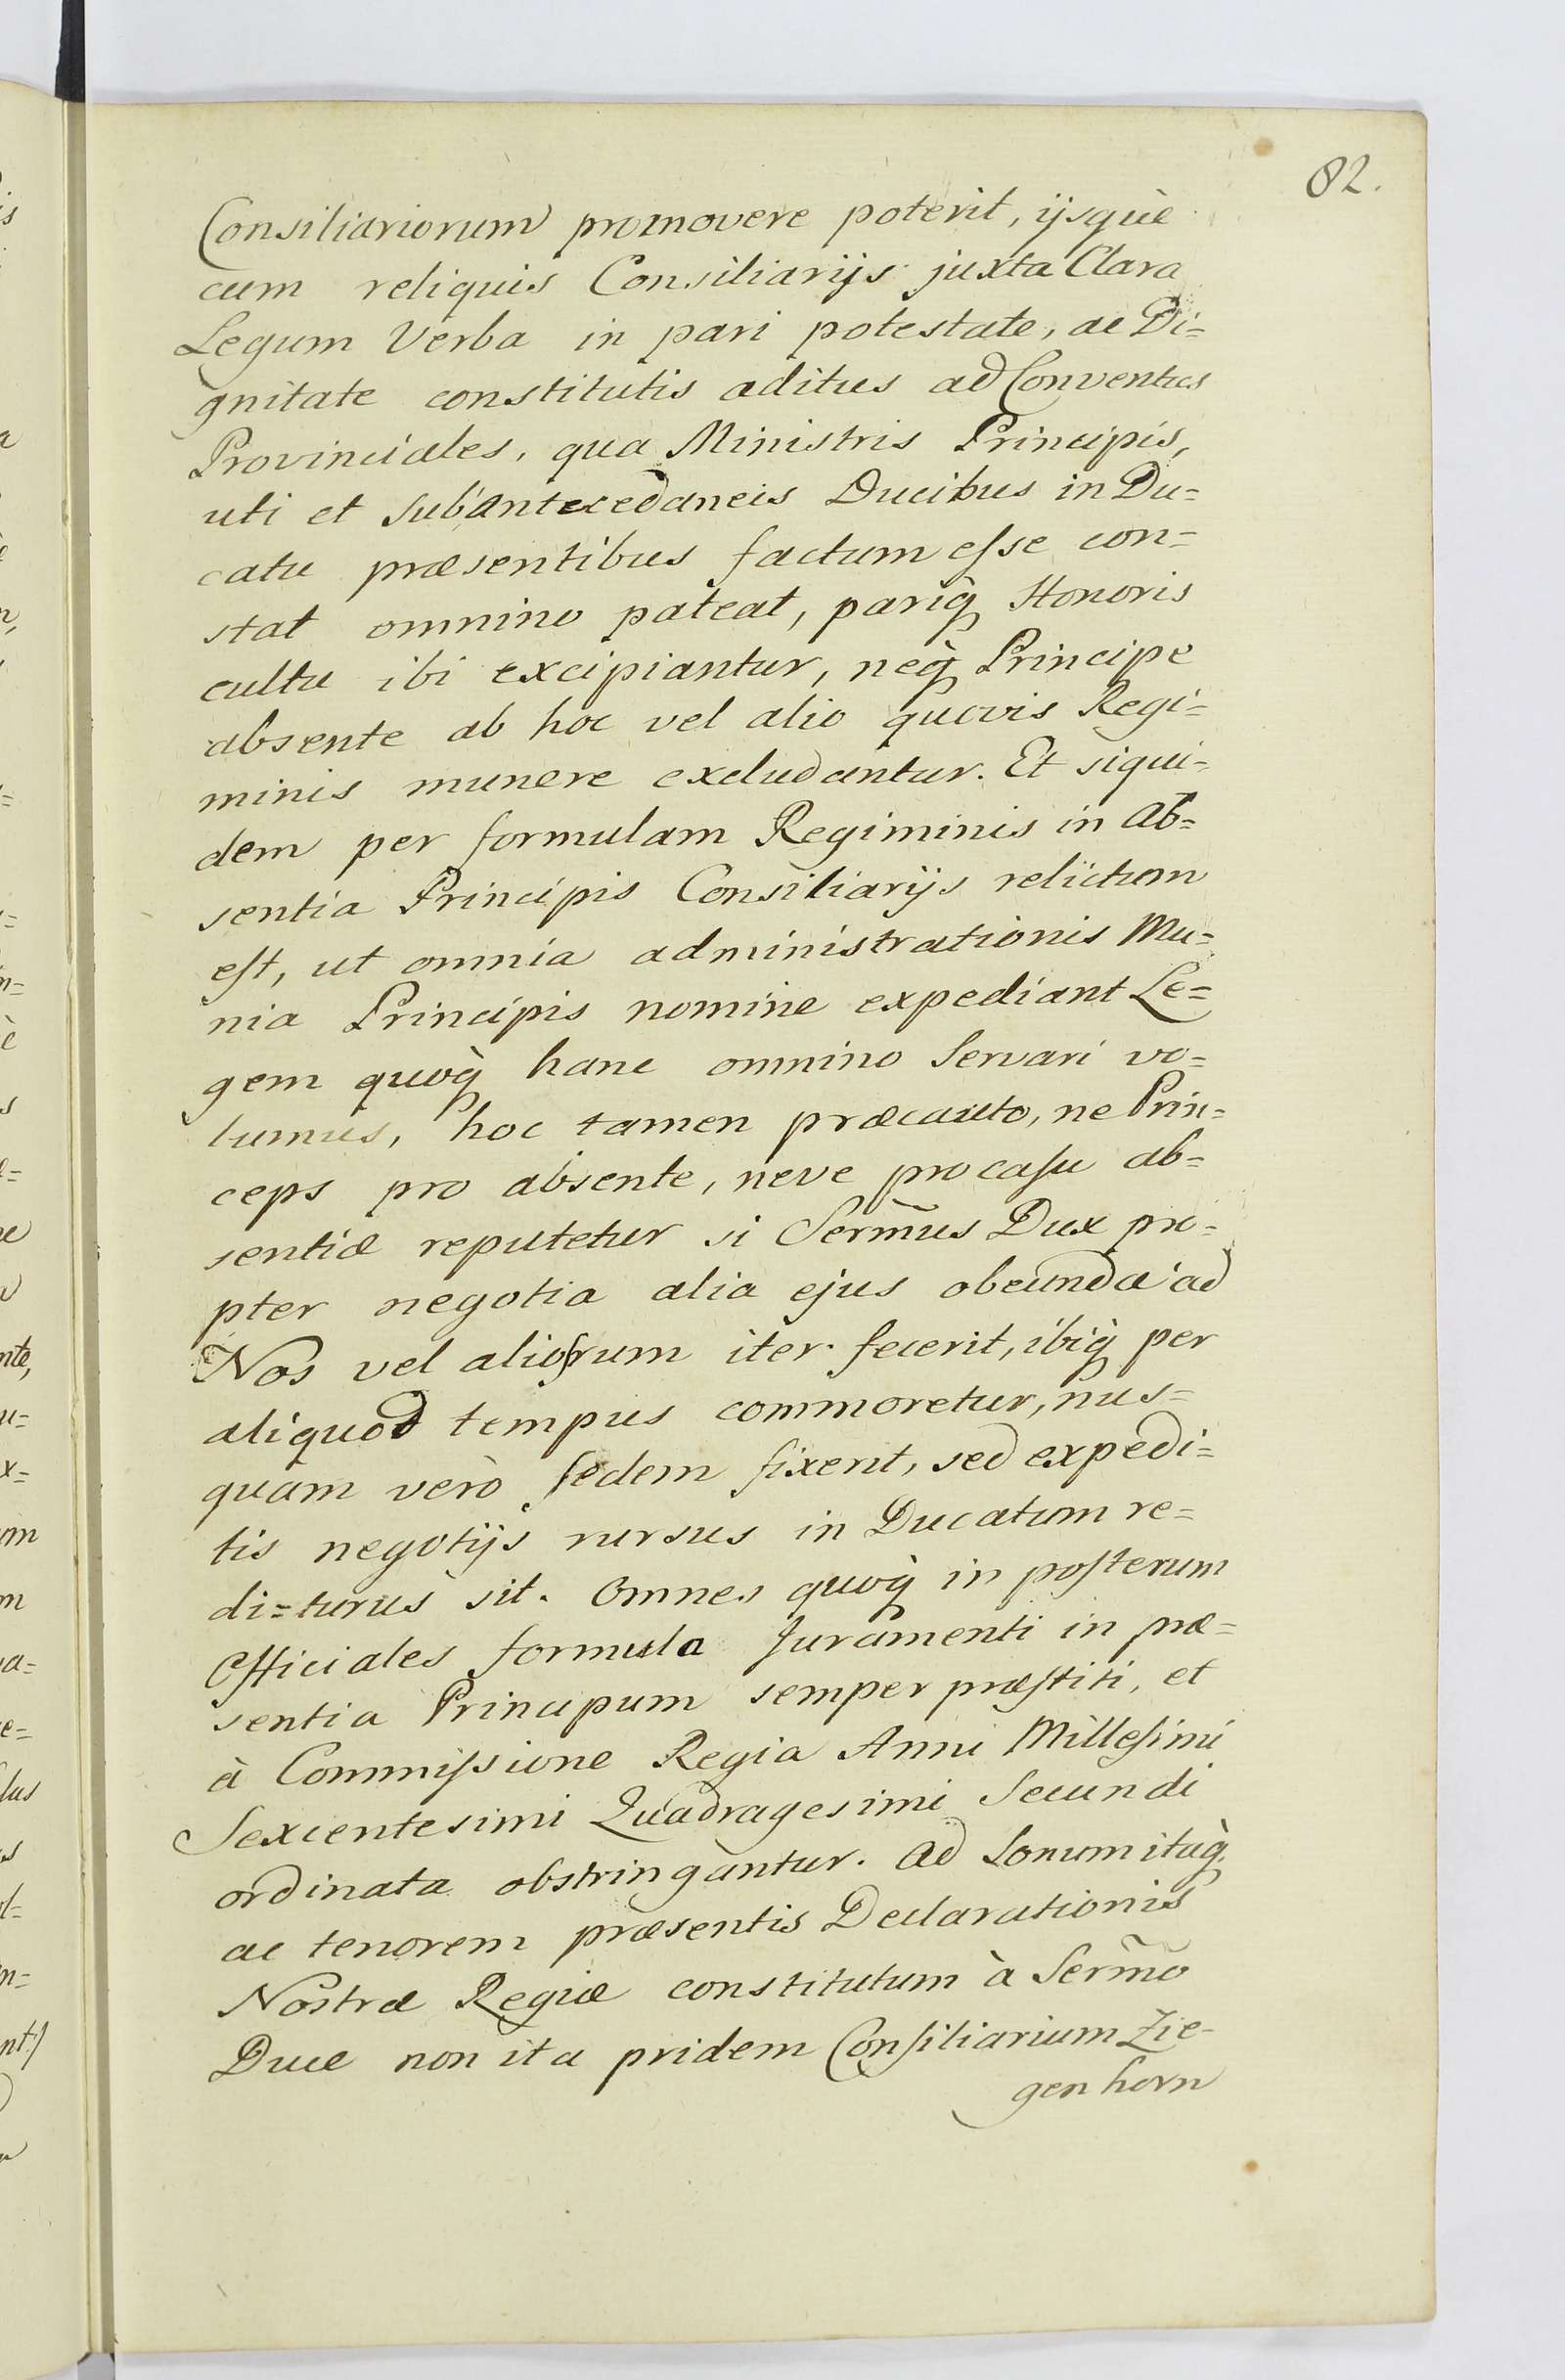 82.
Consiliariorum promovere poterit, ijsquè
cum reliquis Consiliarijs juxta Clara
Legum Verba in pari potestate, ac Di=
gnitate constitutis aditus ad Conventus
Provinciales, qua Ministris Principis,
uti et sub antecedaneis Ducibus in Du=
catu præsentibus factum eſse con=
stat omnino pateat, pariq̀ Honoris
cultu ibi excipiantur, neq̀ Principe
absente ab hoc vel alio quovis Regi=
minis munere excludantur. Et siqui=
dem per formulam Regiminis in Ab=
sentia Principis Consiliarijs relictum
eſt, ut omnia administrationis Mu=
nia Principis nomine expediant Le=
gem quoq̀ hanc omnino Servari vo=
lumus, hoc tamen præcauto, ne Prin=
ceps pro absente, neve pro caſu ab=
sentiæ reputetur si Serm̃us Dux pro=
pter negotia alia ejus obeunda ad
Nos vel aliorum iter fecerit, ibiq̀ per
aliquod tempus commoretur, nus=
quam verò ſedem fixerit, sed expedi=
tis negotijs rursus in Ducatum re=
di=turus sit. Omnes quoq̀ in poſterum
Officiales formula Juramenti in præ=
sentia Principum semper præſtiti, et
à Commiſsione Regia Anni Milleſimi
Sexcentesimi Quadragesimi Secundi
ordinata obstringantur. Ad Sonum itaq̀
ac tenorem præsentis Declarationis
Nostræ Regiæ constitutum à Serm̃o
Duce non ita pridem Conſiliarium Zie-
genhorn